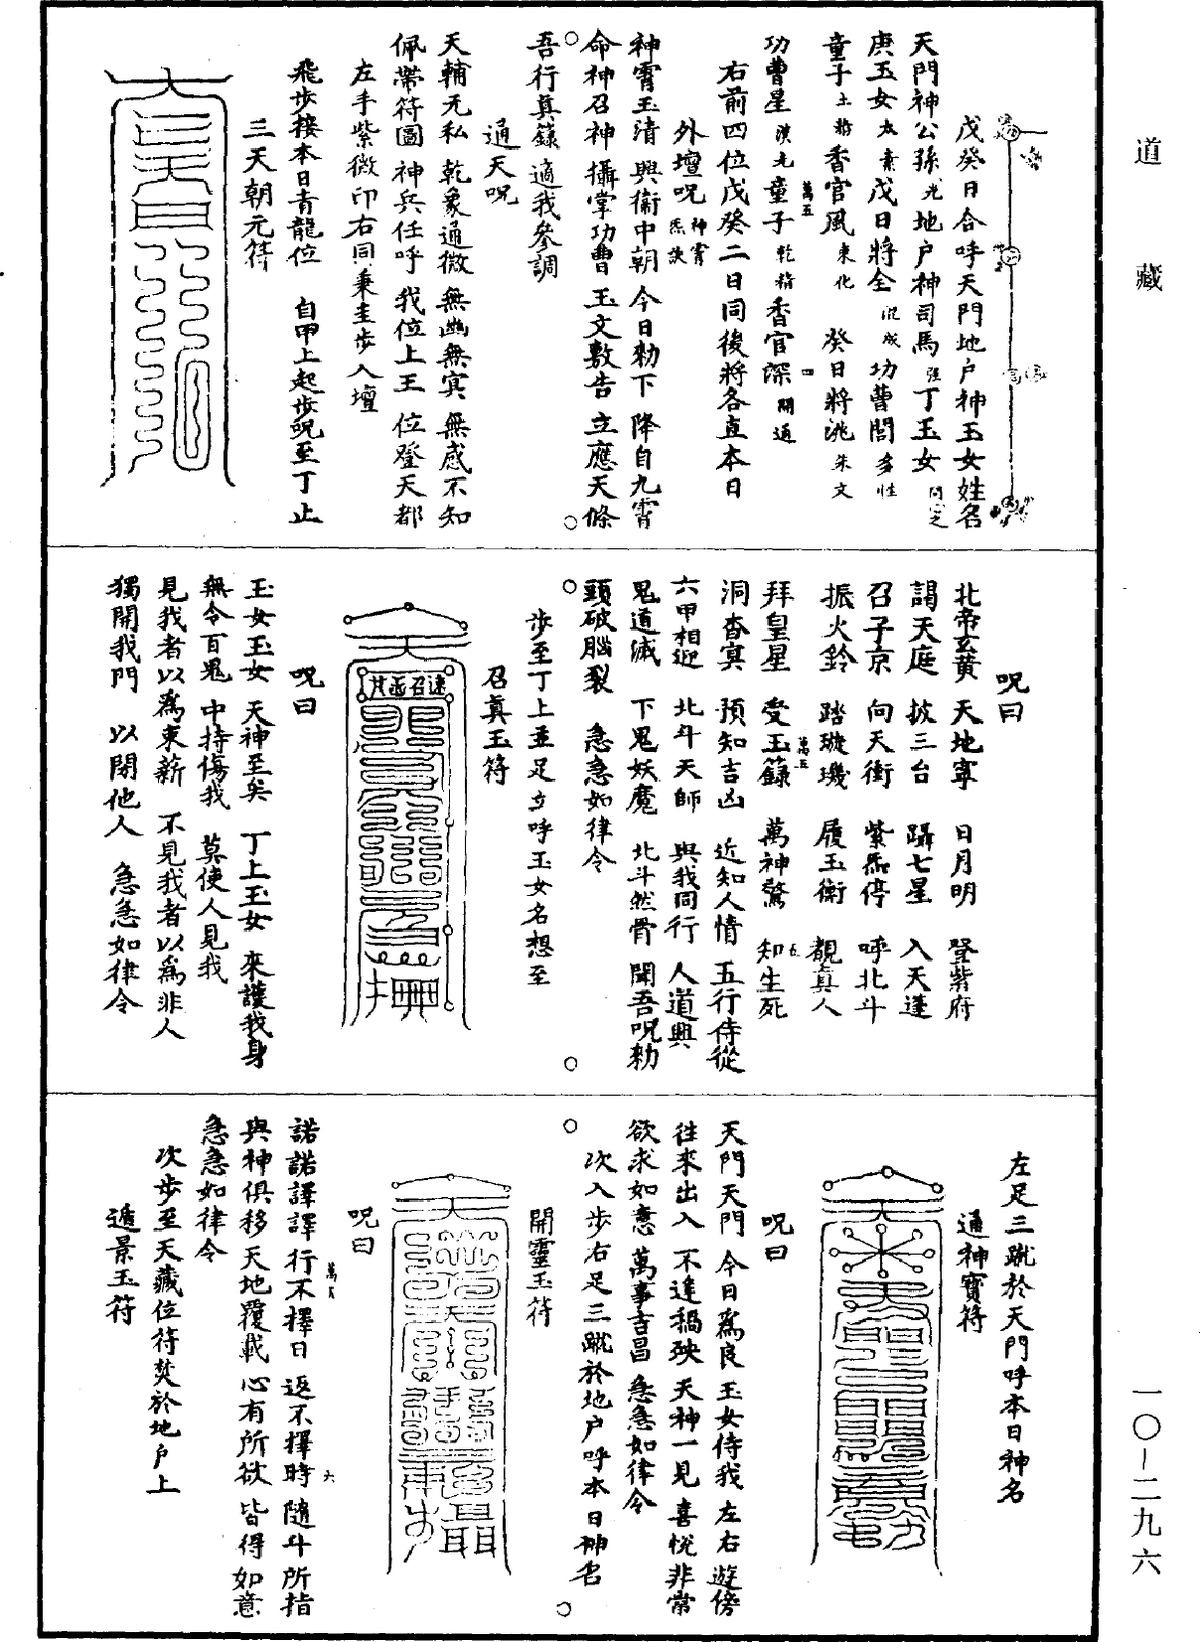 道藏
戊癸日合呼天門地户神玉女姓名
天門神公孫光地户神司馬強丁玉女
庚玉女太素戊日將全混成功曹閻多性
童子土精香官風東化 癸日將洮朱文
功曹星漢元童子乾精香官深開通
右前四位戊癸二日同後將各直本日
外壇呪神霄炁訣
神霄玉清 興衛中朝 今日勑下 降自九霄
命神召神 攝掌功曹 玉文敷告 立應天條
吾行真籙 適我參調
通天呪
天輔无私 乾象通微 無幽無㝠 無感不知
佩帶符圖 神兵任呼 我位上王 位登天都
左手紫微印右同秉圭步入壇
飛步接本日青龍位 自甲上起步呪至丁止
三天朝元符
呪曰
北帝玄黄 天地寧 日月明 登紫府
謁天庭 披三台 躡七星 入天蓬
召子京 向天衝 紫炁停 呼北斗
振火鈴 踏璇璣 履玉衡 覩真人
拜皇星 受玉籙 萬神驚 知生死
洞杳㝠 預知吉凶 近知人情 五行侍從
六甲相迎 北斗天師 與我同行 人道興
鬼道滅 下鬼妖魔 北斗然骨 聞吾呪勑
頭破腦裂 急急如律令
步至丁上並足立呼玉女名想至
召真玉符
呪曰
玉女玉女 天神至矣 丁上玉女 來護我身
無令百鬼 中持傷我 莫使人見我
見我者以為束薪 不見我者以為非人
獨開我門 以閉他人 急急如律令
左足三蹴於天門呼本日神名
通神寳符
呪曰
天門天門 今日為良 玉女侍我 左右遊傍
往來出入 不逢禍殃 天神一見 喜悅非常
欲求如意 萬事吉昌 急急如律令
次入步右足三蹴於地户呼本日神名
開靈玉符
呪曰
諾諾譯譯 行不擇日 返不擇時 隨斗所指
與神俱移 天地覆載 心有所欲 皆得如意
急急如律令
次步至天藏位符焚於地户上
遁景玉符
一〇—二九六